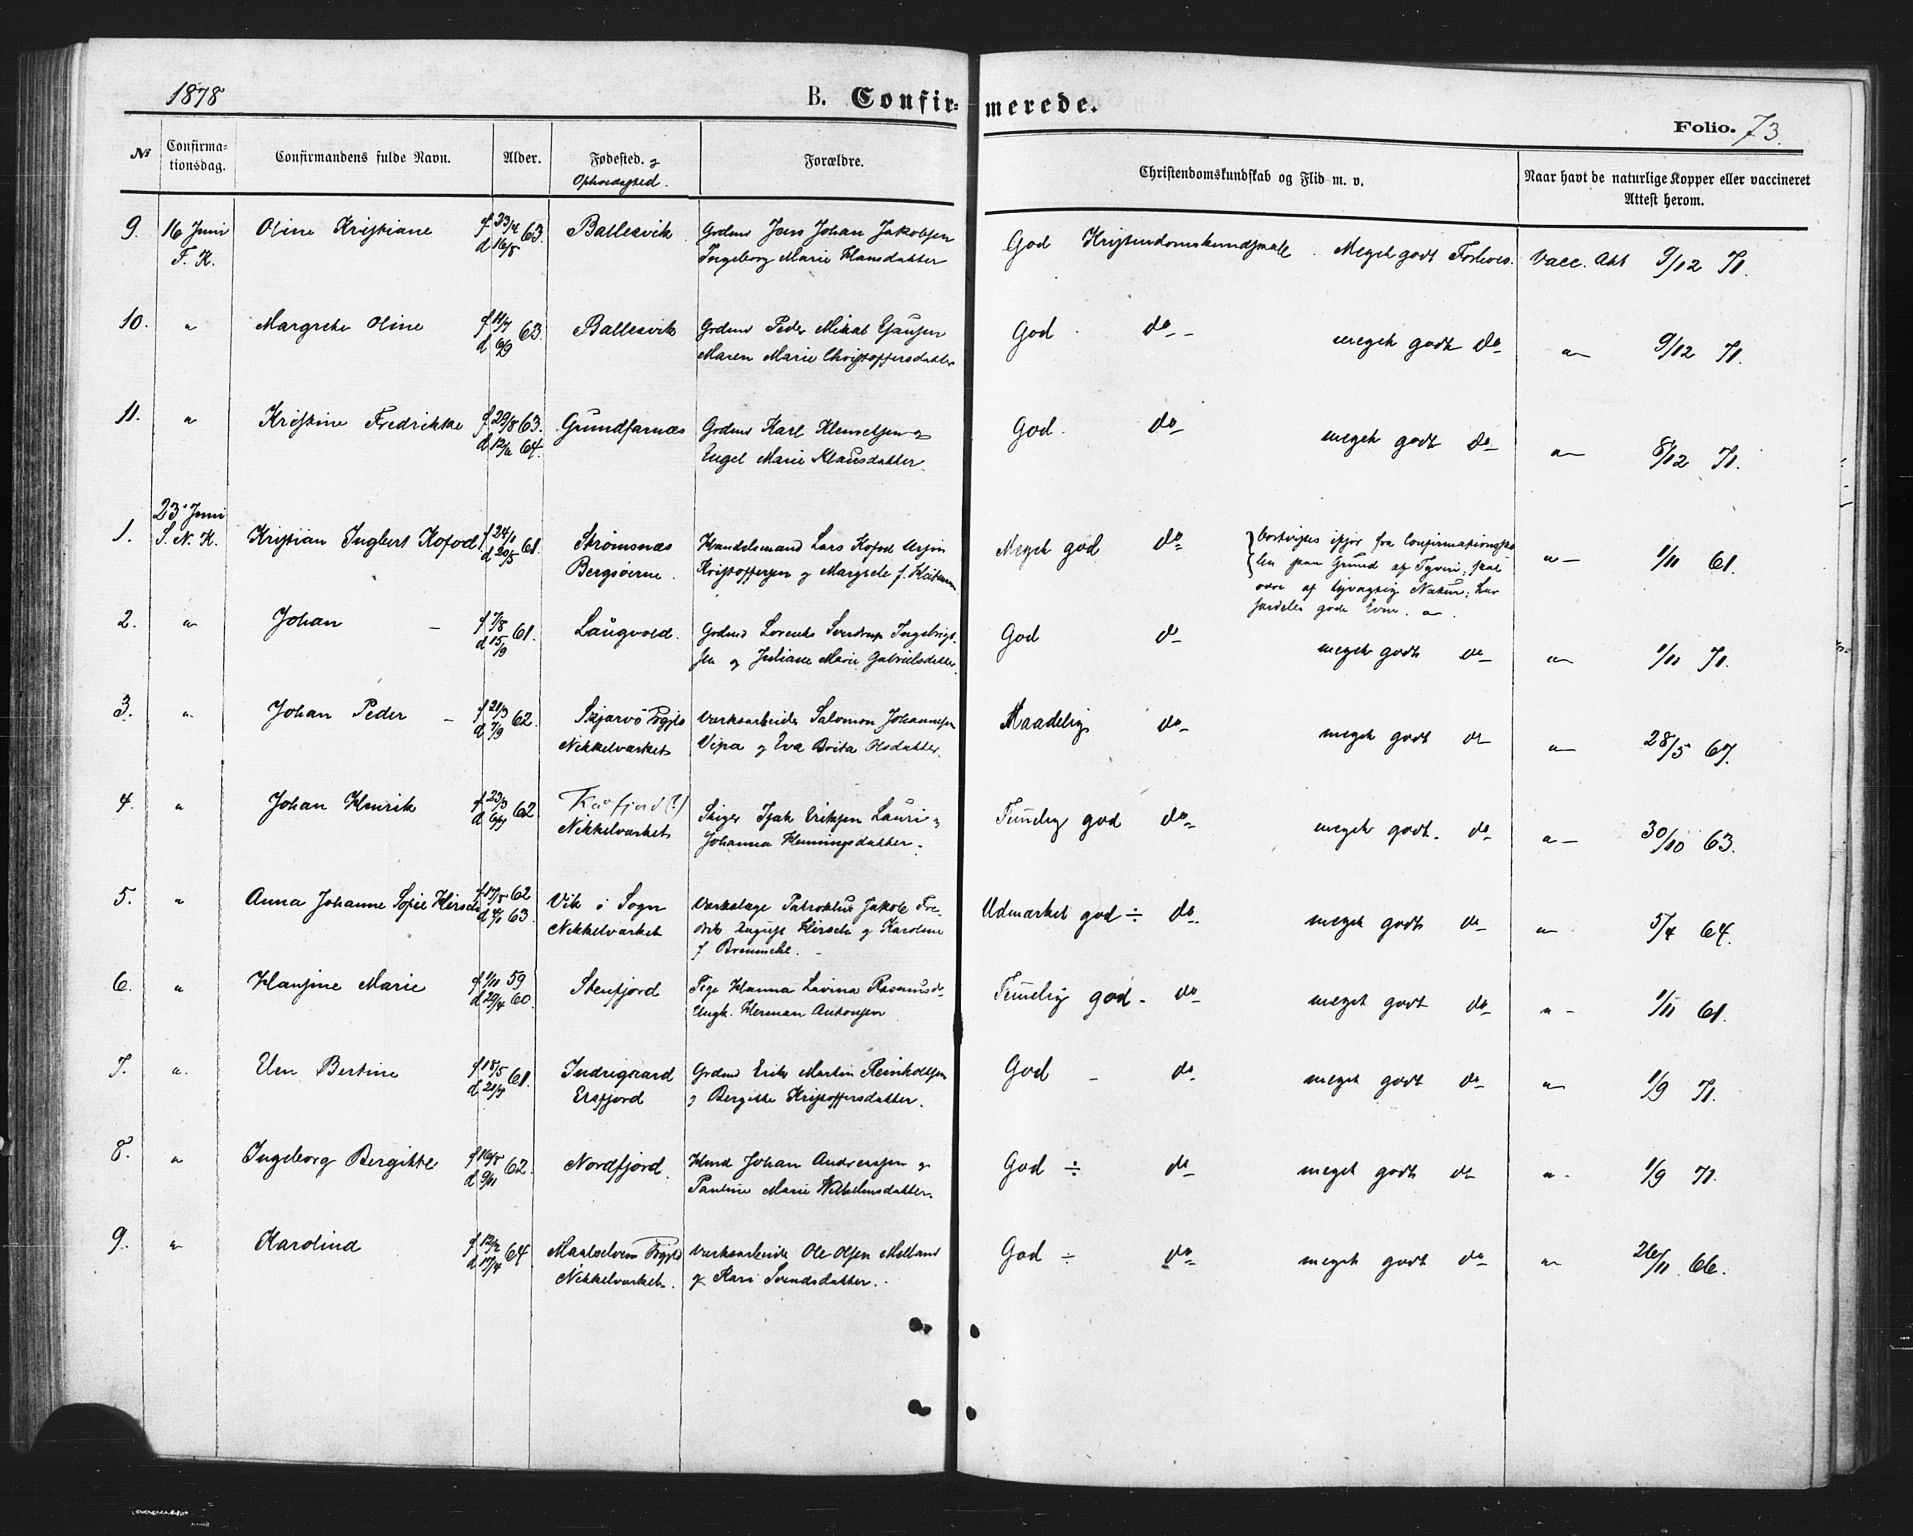 1878
B. Confir=
merede.
Folio. 73.
№
Confirma=
tionsdag.
Confirmandens fulde Navn.
Alder.
Fødested. og
Opholdssted.
Forældre.
Christendomskundskab og Flid m. v.
Naar havt de naturlige Kopper eller vaccineret
Attest herom.
9. 16 Juni Oline Kristiane f 23/4 63. Ballesvik Grdmd Jens Johan Jakobsen God Kristendomskundskab. Meget godt Forhold. Vacc. Att 9/12 71.
F. K. d 16/8 Ingeborg Marie Hansdatter
10. " Margrethe Oline f 11/7 63. Ballesvik Grdmd Peder Mikal God do meget godt do " 9/12 71.
d 6/9 Maren Marie Christoffersdatter
11. " Kristine Fredrikke f 29/8 63. Gundfarnæs Grdmd Karl Klemetsen og God do meget godt do " 8/12 71.
d 12/6 64. Engel Marie Klausdatter.
23 Juni
1. S. N. K. Kristian Ingbert Kofod f 24/1 61. Strømsnæs Handelsmand Lars Kofod Meget god do bortvistes ifjor fra Confirmationssko= " 1/11 61.
d 20/5 Bergsøerne. Kristoffersen og Margrete f. len paa Grund af Tyveri; skal
være af Natur; har
gode Evner.
2. " Johan – f 7/8 61. Laugvold. Grdmd Lorents Sverdrup Ingebrigt= God do meget godt do " 1/11 71.
d 15/9 sen og Juliane Marie Gabrielsdatter
3. " Johan Peder – f 21/3 62. Skjærvø Værksarbeider Salomon Johannesen Maadelig do meget godt do " 28/5 67.
d 7/9 Nikkelværket Vipa og Eva Brita Olsdatter.
4. " Johan Henrik f 23/3 62 Kaafjord (?) Isak Eriksen Lauri og Temmelig god do meget godt. do " 30/10 63.
d 6/7 Nikkelværket Johanna Henningsdatter.
5. " Anna Johanne Sofie Hirsch f 17/8 62 Vik i Sogn Værkslæge Patroklus Jakob Fre= Udmærket god ÷ do meget godt do " 5/4 64.
63. Nikkelværket drik August Hirsch og Karoline
f
6. " Hansine Marie f 1/11 59 Stenfjord Pige Hanna Lavina Rasmusd. Temmelig god. do meget godt do " 1/11 61.
d 29/4 60. Ungk. Herman Antonsen
7. " Elen Bertine f 18/5 61. Indregaard Grdmd Erik Martin Reinholtsen God – do meget godt do " 1/9 71.
d 21/7 Ersfjord og Bergitte Kristoffersdatter.
8. " Ingeborg Bergitte f 16/8 62. Nordfjord. Hmd Johan Andreassen og God ÷ do meget godt do " 1/9 71.
d 9/11 Pauline Marie Vilhelmsdatter.
9. " Karolina f 12/2 64. Maalselven Værksarbeider Ole Olsen God ÷ do meget godt do " 26/11 66.
d 17/4 Nikkelværket. og Kari Svendsdatter.